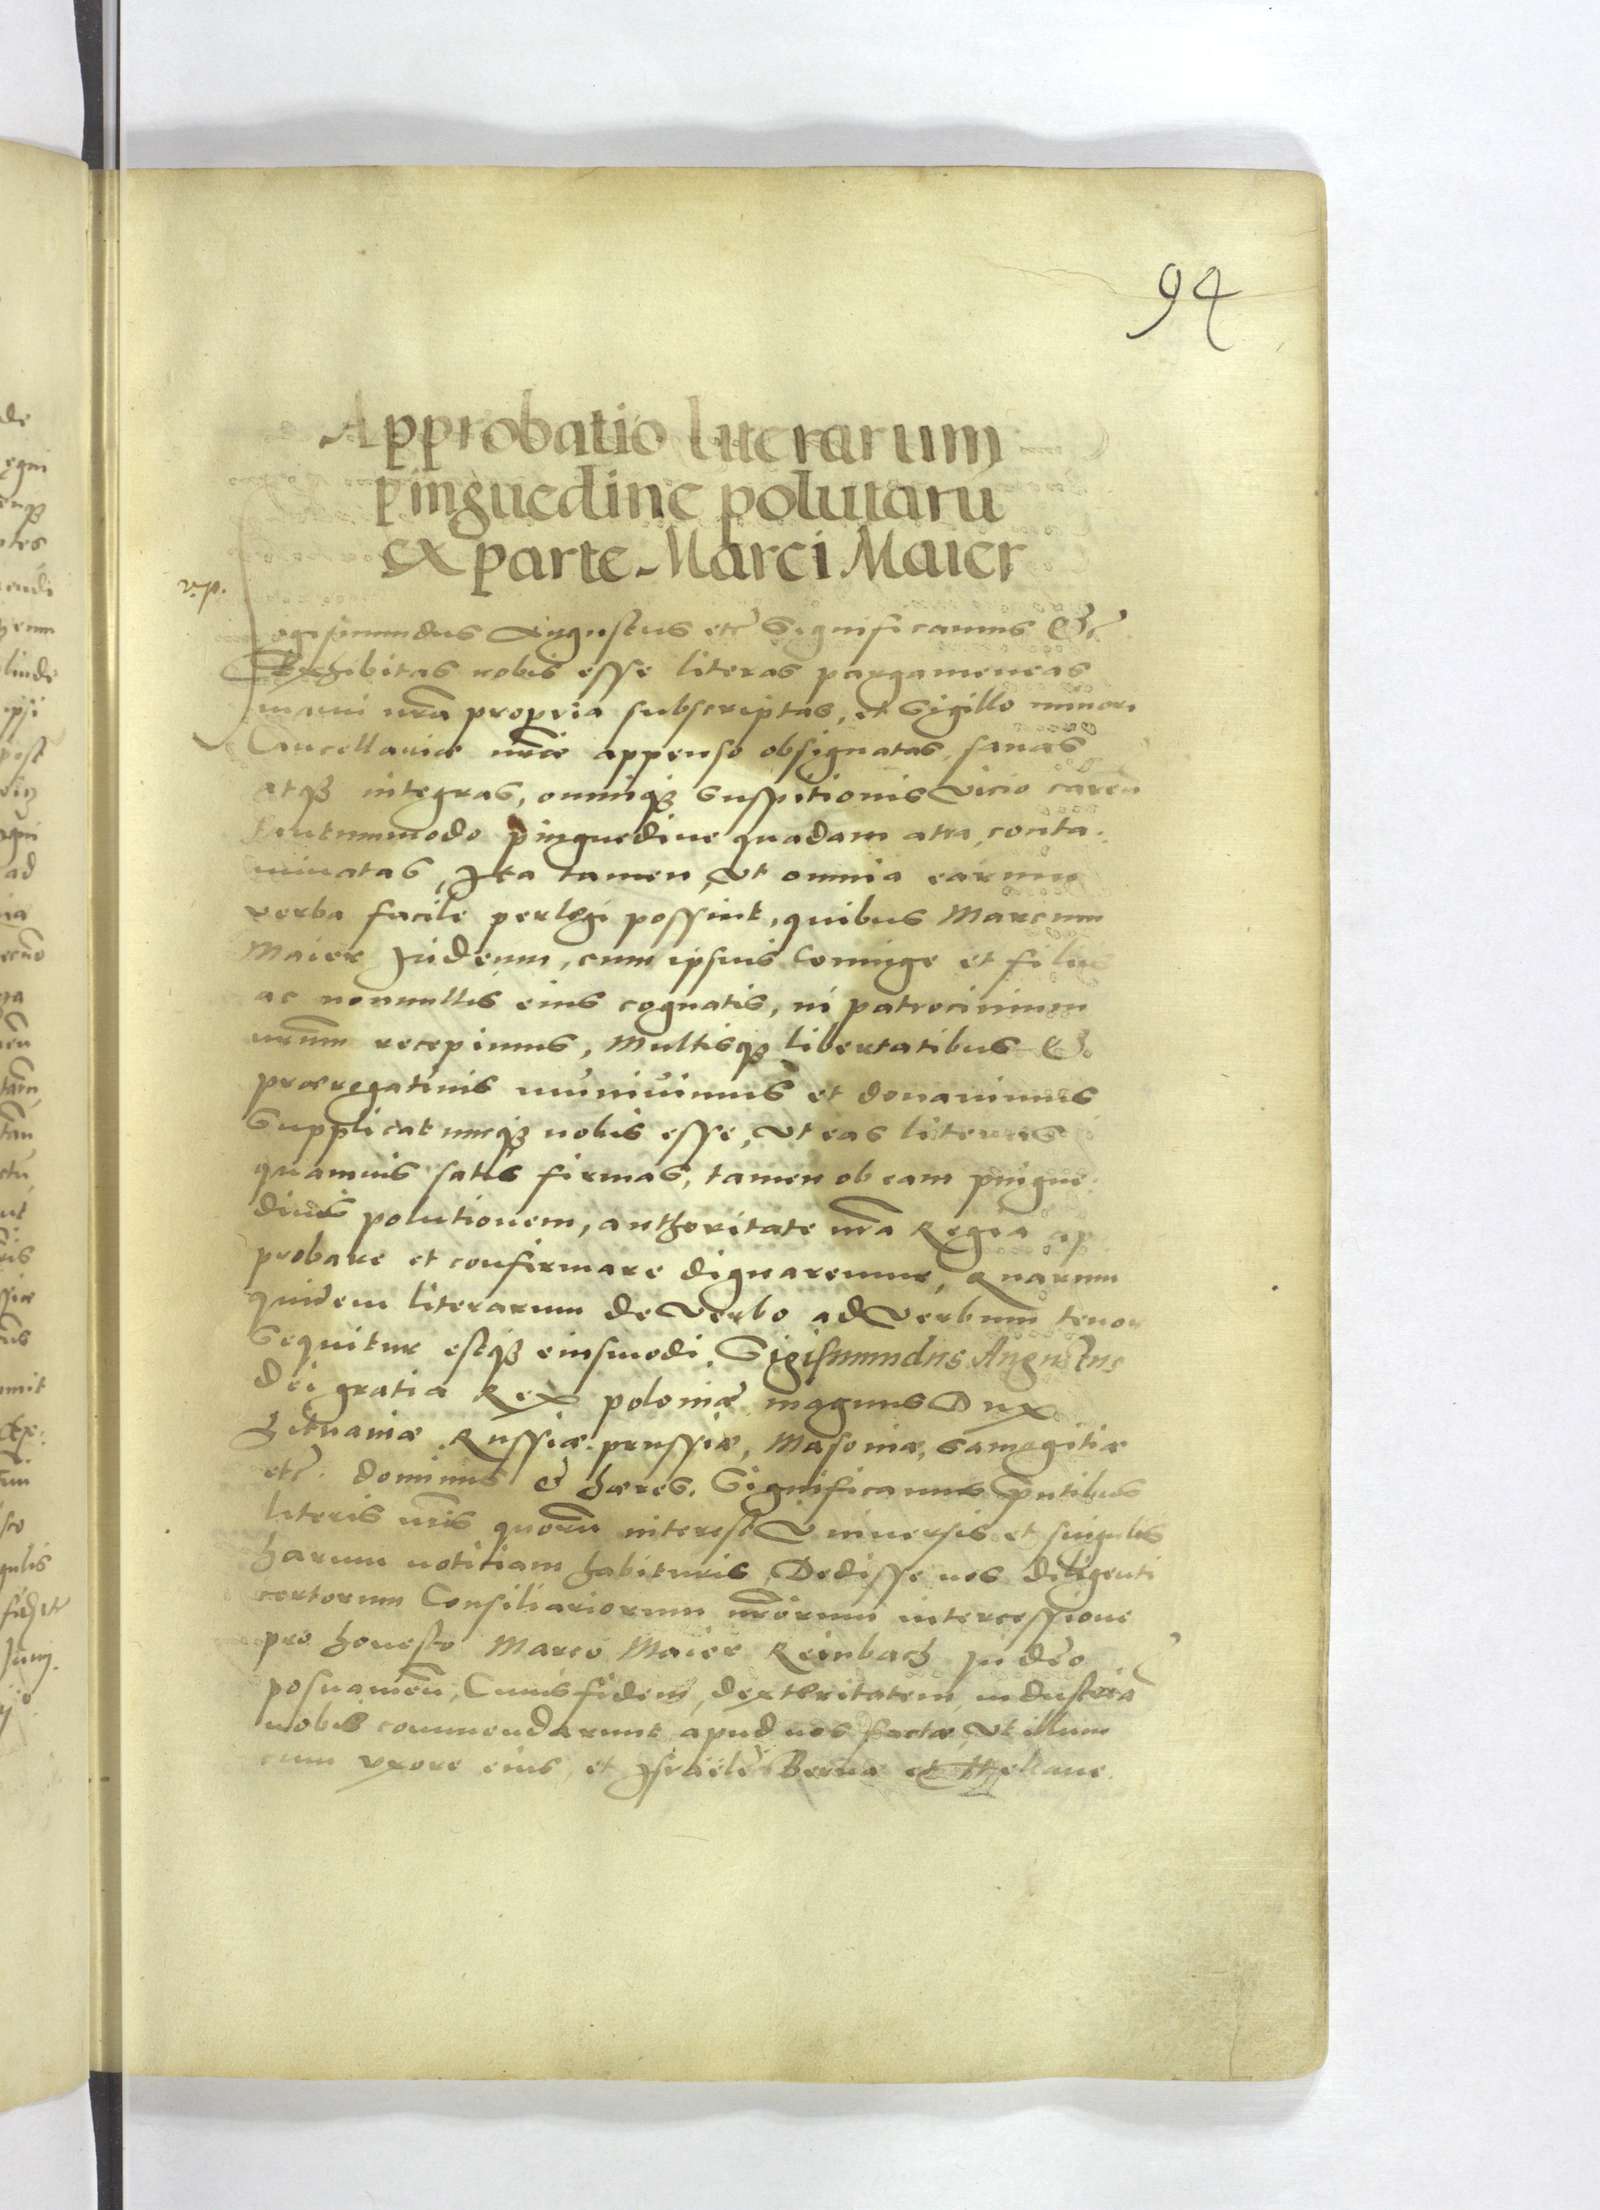 94
Approbatio literarum
pinguedine polutarũ
ex parte Marci Maier
v. p.
Sigismundus Augustus etc Significamus &c
Exhibitas nobis esse literas pargameneas
manu nrã propria subscriptas, et Sigillo minori
Cancellariæ nrãe appenso obsignatas, sanas
atqꝫ integras, omniqꝫ suspitionis vicio caren
tantummodo pinguedine quadam atra conta:
minatas, Ita tamen, Vt omnia earum
verba facile perlegi possint, quibus Marcum
Maier Judeum, cum ipsius Coniuge et filiis
ac nonnullis eius cognatis, in patrocinium
nrũm recepimus, Multisqꝫ libertatibus &
præregatinis muniuimus et donauimus
Supplicatumqꝫ nobis esse, Vt eas literas
quamuis satis firmas, tamen ob eam pingue:
dinis polutionem, authoritate nrã Regia ap
probare et confirmare dignaremur, Quarum
quidem literarum de Verbo ad Verbum tenor
Sequitur estqꝫ eiusmodi, Sigismundus Augustus
Dei gratia Rex poloniæ magnus Dux
Lituaniæ Russiæ prussiæ, Masoniæ, Samogitiæ
etc. dominus & hæres. Significamus pñtibus
literis nrĩs quorũ interest Vniuersis et singulis
harum notitiam habituris, Dedisse nos diligenti
certorum Consiliariorum nrõrum intercessione
pro honesto Marco Maier Reinbach Judeo
posnamẽn, Cuius fidem, dexteritatem industriã
nobis commendarunt apud nos factæ, Vt illum
cum vxore eius, et Israële Berna et Hellane